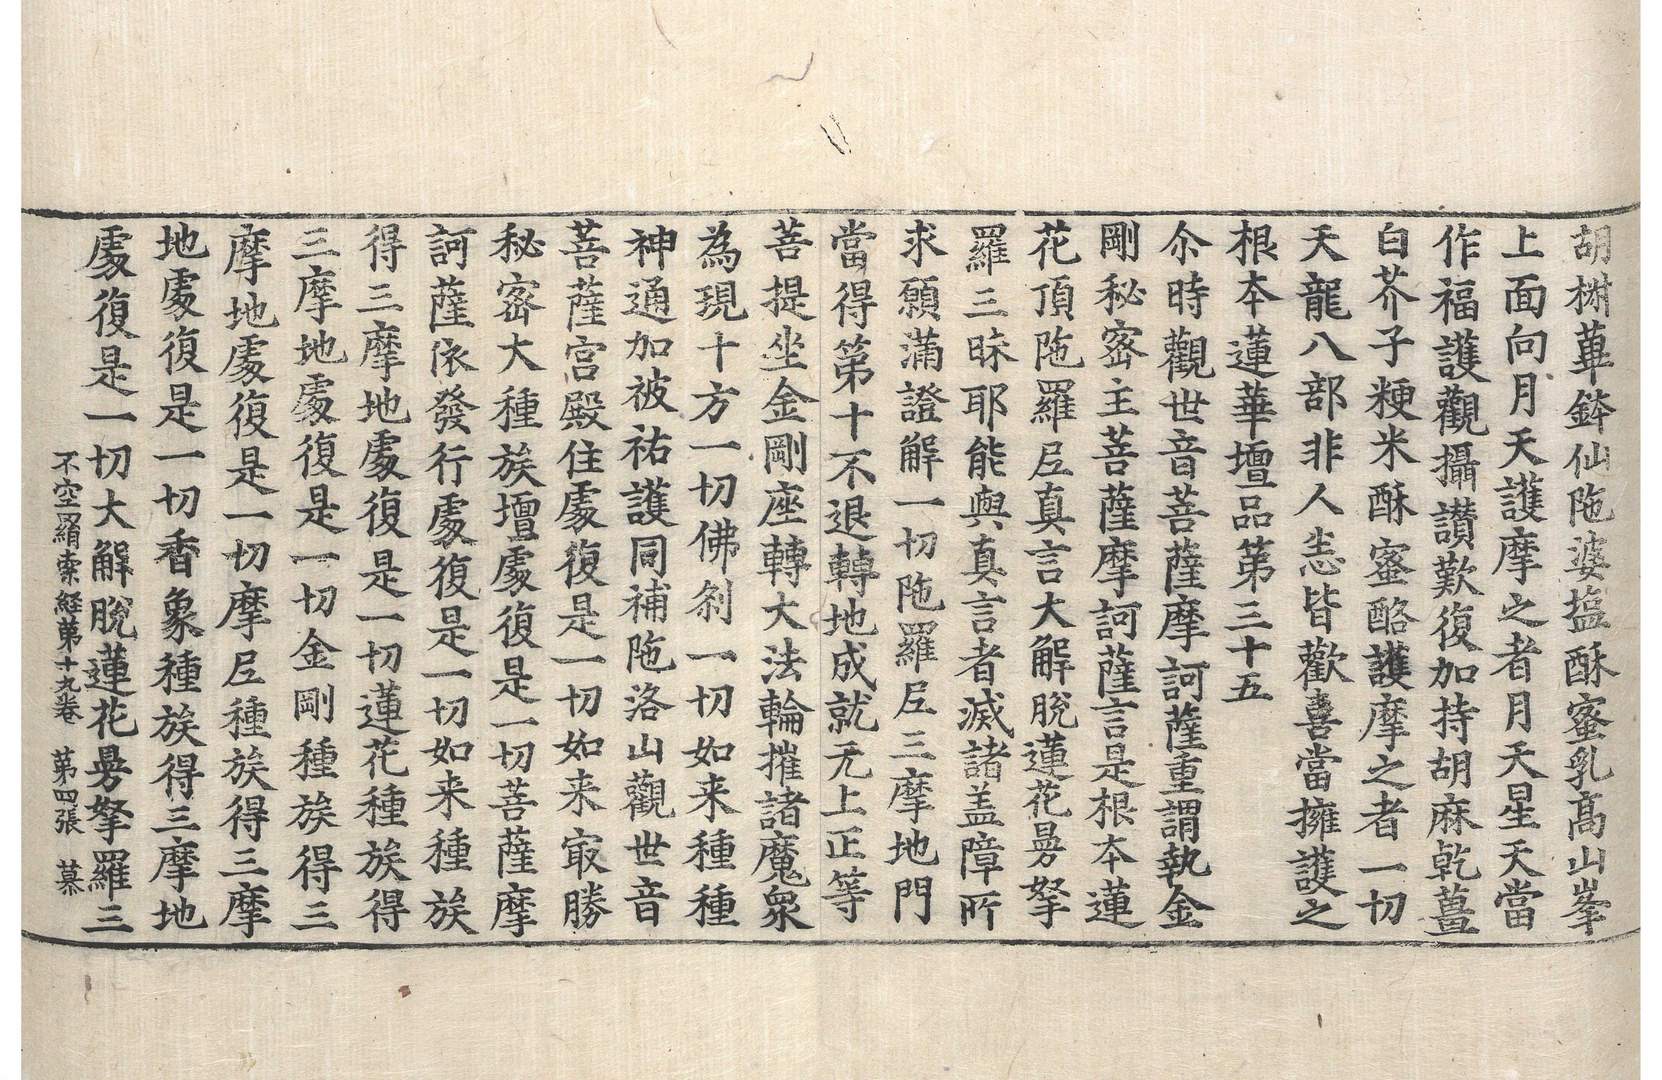 胡樹蓽鉢仙陁婆塩酥蜜乳髙山峯
上面向月天護摩之者月天星天當
作福護觀攝讃歎復加持胡麻乾薑
白芥子粳米酥蜜酪護摩之者一切
天龍八部非人恙皆歡喜當擁護之
根夲蓮華壇品第三十五
尒時觀世音菩薩摩訶薩重謂執金
剛秘宻主菩薩摩訶薩言是根夲蓮
花頂陁羅尼真言大解脫蓮花曼拏
羅三昧耶能與真言者滅諸盖障所
求願滿證解一切陁羅尼三摩地門
當得第十不退轉地成就无上正等
菩提坐金剛座轉大法輪摧諸魔衆
為現十方一切佛剎一切如来種種
神通加被祐護同補陁洛山觀世音
菩薩宮殿住處復是一切如来㝡勝
秘宻大種族壇處復是一切菩薩摩
訶薩依發行處復是一切如来種族
得三摩地處復是一切蓮花種族得
三摩地處復是一切金剛種族得三
摩地處復是一切摩尼種族得三摩
地處復是一切香象種族得三摩地
處復是一切大解脫蓮花曼拏羅三
不空羂索経第十九卷　第四張　慕